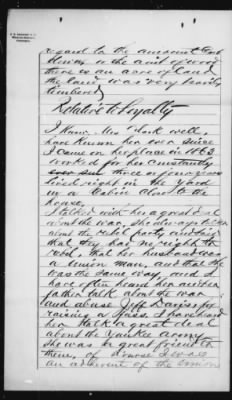 regard to the amount
there is an acre of land
the land was very heavily
timbered
Relative to Loyalty
I know Mrs well,
have known her ever since
I came on her place in 1863
worked for her constantly
ever since three or four years
lived right in the yard
in a cabin close to the
house,
I talked with her a great deal
about the war, she always
about the rebel party and said
that they has no right to
rebel, that her husband was
a Union man, and that she
was the same way, and I
have often heard her and her
father talk about the war
and abuse Jeff Davis for
raising a fuss. I have heard
her talk a great deal
about the Yankee army
she was a great friend to
them, of course I was
an adherent of the Union